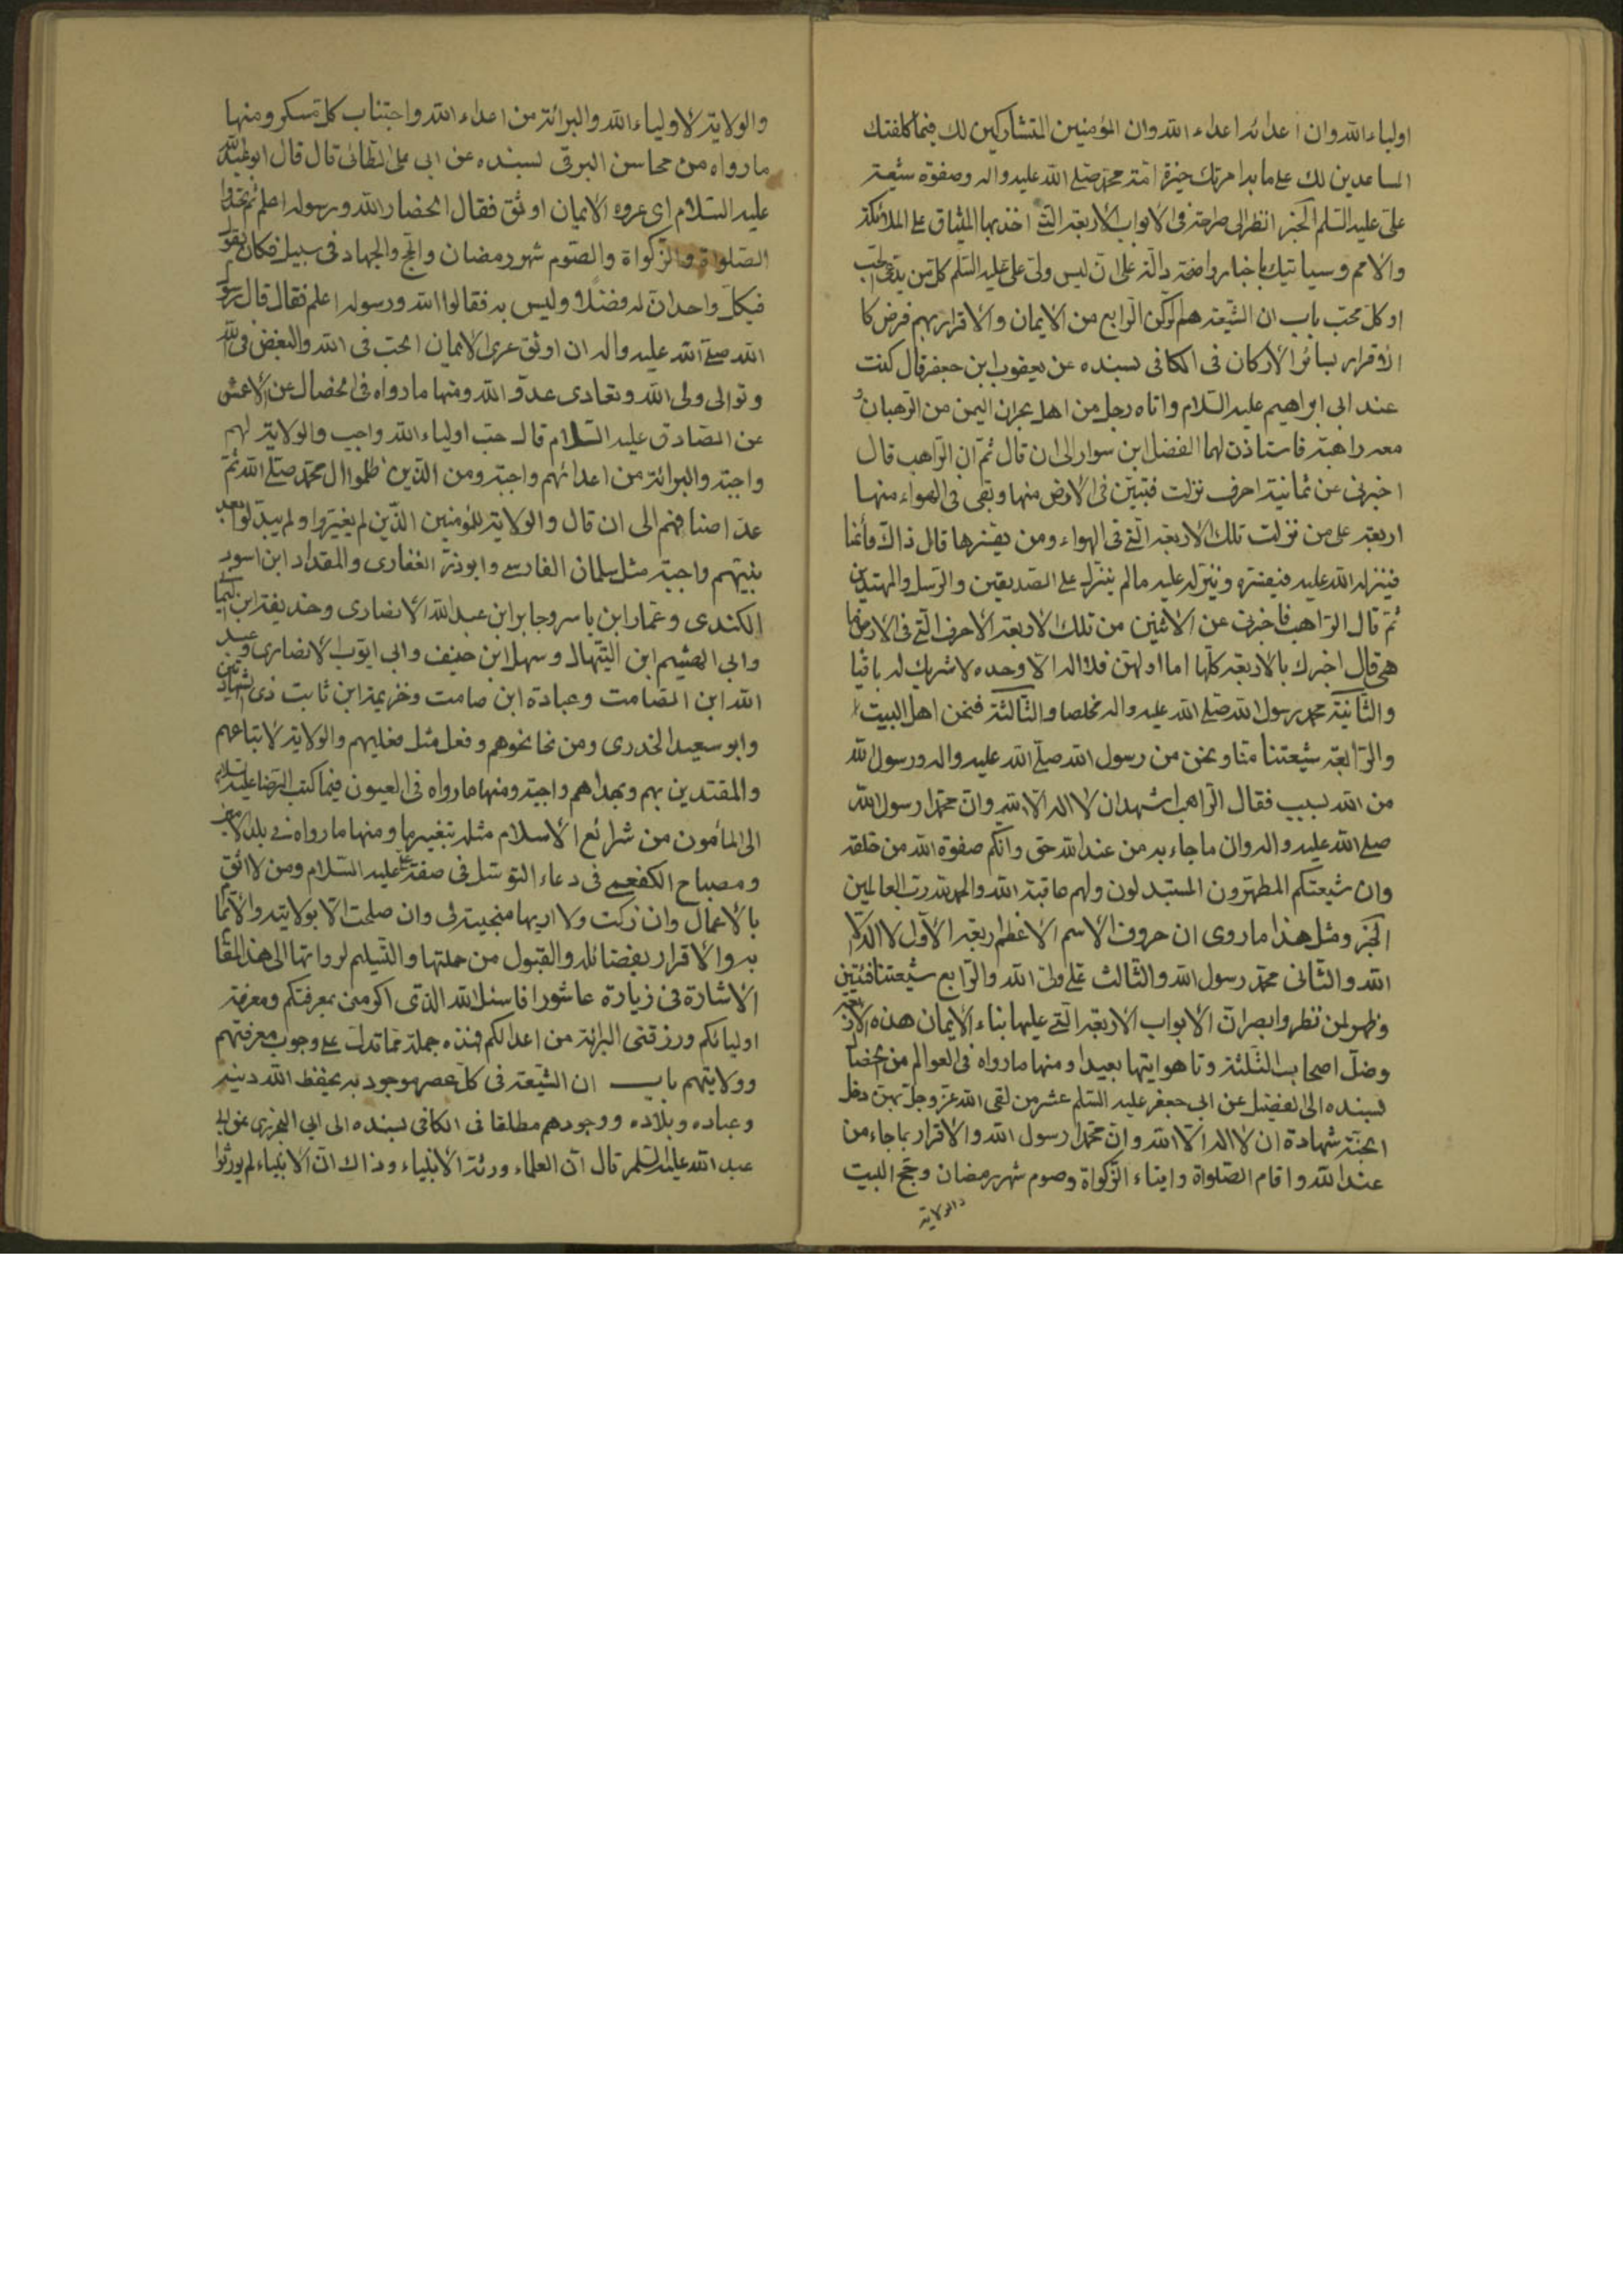 اولياء الله وان اعدائه اعداء الله وان المؤمنين المتشاركين لك فيما كلفتك
المساعدين لك على ما به امرتك خيرة امة محمد صلى الله عليه واله وصفوة شيعة
على عليه السلم الخبر انظر الى صراحته فى الابواب الاربعة التى اخذ بها الميثاق على الملائكة
والامم وسياتيك باخبار واضحة دالة على ان ليس ولى على عليه السلم كل من يدعى الحب
او كل محب باب ان الشيعة هم الركن الرابع من الايمان والاقرار بهم فرض كا
الاقرار بسائر الاركان فى الكافى بسنده عن يعقوب ابن جعفر قال كنت
عند ابى ابراهيم عليه السلام واتاه رجل من اهل نجران اليمن من الرهبان و
معه راهبة فاستاذن لهما الفضل ابن سوار الى ان قال ثم ان الراهب قال
اخبرنى عن ثمانية احرف نزلت فتبين فى الارض منها وبقى فى الهواء منها
اربعة على من نزلت تلك الاربعة التى فى الهواء ومن يفسرها قال ذاك قائمنا
فينزله الله عليه فيفسره وينزل عليه مالم ينزل على الصديقين والرسل والمهتدين
ثم قال الراهب فاخبرنى عن الاثنين من تلك الاربعة الاحرف التى فى الارض ما
هى قال اخبرك بالاربعة كلها اما اولهن فلا اله الا وحده لا شريك له باقيا
والثانية محمد رسول الله صلى الله عليه واله مخلصا والثالثة فنحن اهل البيت
والرابعة شيعتنا منا ونحن من رسول الله صلى الله عليه واله ورسول الله
من الله بسبب فقال الراهب اشهد ان لا اله الا الله وان محمدا رسول الله
صلى الله عليه واله وان ماجاء به من عند الله حق وانكم صفوة الله من خلقه
وان شيعتكم المطهرون المستبدلون ولهم عاقبة الله والحمد لله رب العالمين
الخبر ومثل هذا ماروى ان حروف الاسم الاعظم اربعة الاول لا اله الا
الله والثانى محمد رسول الله والثالث على ولى الله والرابع شيعتنا فتبين
وظهر لمن نظر وابصر ان الابواب الاربعة التى عليها بناء الايمان هذه الاربعة
وضل اصحاب الثلثة وتاهوا يتها بعيدا ومنها مارواه فى العوالم من الخصا
بسنده الى الفضيل عن ابى جعفر عليه السلم عشر من لقى الله عز وجل بهن دخل
الجنة شهادة ان لا اله الا الله وان محمدا رسول الله والاقرار بما جاء من
عند الله واقام الصلواة وايتاء الزكواة وصوم شهر رمضان وحج البيت
والولاية
والولاية لاولياء الله والبرائة من اعداء الله واجتناب كل مسكر ومنها
مارواه من محاسن البرقى بسنده عن ابى على قال قال ابو عبد الله
عليه السلام اى عروة الايمان اوثق فقال الحضار الله ورسوله اعلم ثم
الصلواة والزكواة والصوم شهر رمضان والحج والجهاد فى سبيل فكان يقول
فى كل واحد ان له فضلا وليس به فقالوا الله ورسوله اعلم فقال قال رسول
الله صلى الله عليه واله ان اوثق عرى الايمان الحب فى الله والبغض فى الله
وتوالى ولى الله وتعادى عدو الله ومنها مارواه فى الخصال عن الاعمش
عن الصادق عليه السلام قال حب اولياء الله واجب والولاية لهم
واجبة والبرائة من اعدائهم واجبة ومن الذين ظلموا ال محمد صلى الله ثم
عد اصنافهم الى ان قال والولاية للمؤمنين الذين لم يغيروا ولم يبدلوا بعد
نبيهم واجبة مثل سلمان الفارسى وابوذر الغفارى والمقداد ابن اسود
الكندى وعمار ابن ياسر وجابر ابن عبدالله الانصارى وحذيفة ابن اليما
وابى الهشيم ابن التيهال وسهل ابن حنيف وابى ايوب الانصارى وعبد
الله ابن الصامت وعبادة ابن صامت وخزيمة ابن ثابت ذى الشهادتين
وابو سعيد الخدرى ومن نحا نحوهم وفعل مثل فعليهم والولاية لاتباعهم
والمقتدين بهم وبهداهم واجبة ومنها مارواه فى العيون فيما كتب الرضا عليه السلام
الى المأمون من شرائع الاسلام مثله بتغيير ما ومنها مارواه فى بلد الامين
ومصباح الكفعمى فى دعاء التوسل فى صفة على عليه السلام ومن لا اثق
بالاعمال وان زكت ولا اريها منجية لى وان صلحت الا بولايته والايتما
به والاقرار بفضائله والقبول من حملتها والتسليم لرواتها الى هذا المقا
الاشارة فى زيارة عاشورا فاسئل الله الذى اكرمنى بمعرفتكم ومعرفة
اوليائكم ورزقنى البرائة من اعدائكم فهذه جملة مما تدل على وجوب معرفتهم
وولايتهم باب ان الشيعة فى كل عصر موجود به يحفظ الله دينه
وعباده وبلاده ووجودهم مطلقا فى الكافى بسنده الى ابى البخترى عن ابى
عبد الله عليه السلم قال ان العلماء ورثة الانبياء وذاك ان الانبياء لم يورثوا